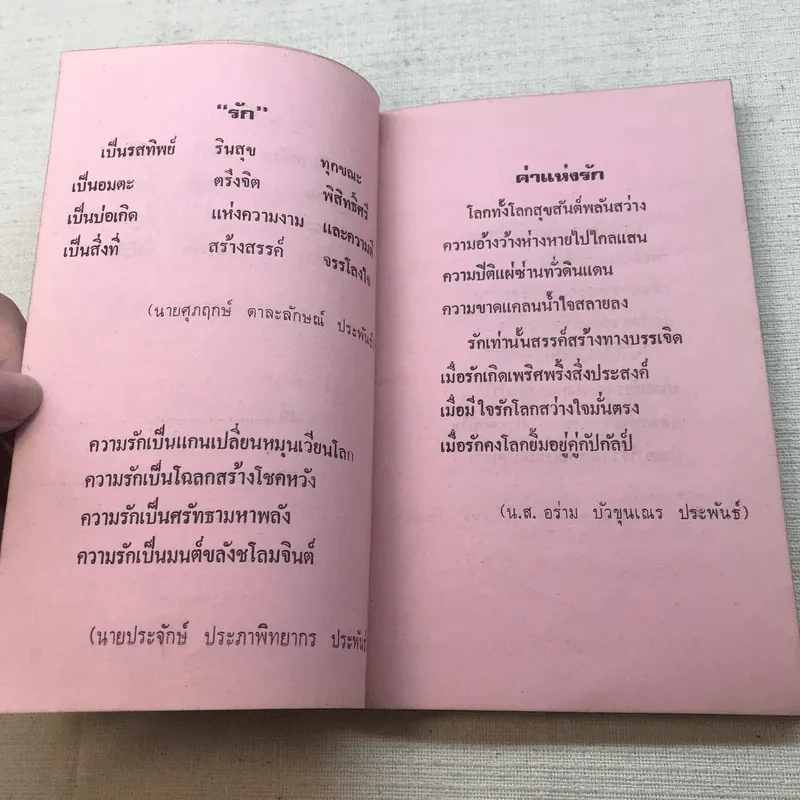 “รัก”
เป็นรสทิพย์ รินสุข ทุกขณะ
เป็นอมตะ ตรึงจิต พิสิทธิ์ศรี
เป็นบ่อเกิด แห่งความงาม และความดี
เป็นสิ่งที่ สร้างสรรค์ จรรโลงใจ
(นายศุภฤกษ์ ตาละลักษณ์ ประพันธ์)
ความรักเป็นแกนเปลี่ยนหมุนเวียนโลก
ความรักเป็นโฉลกสร้างโชคหวัง
ความรักเป็นศรัทธามหาพลัง
ความรักเป็นมนต์ขลังชโลมจินต์
(นายประจักษ์ ประภาพิทยากร ประพันธ์)
ค่าแห่งรัก
โลกทั้งโลกสุขสันต์พลันสว่าง
ความอ้างว้างห่างหายไปไกลแสน
ความปิติแผ่ซ่านทั่วดินแดน
ความขาดแคลนน้ำใจสลายลง
รักเท่านั้นสรรค์สร้างทางบรรเจิด
เมื่อรักเกิดเพริศพริ้งสิ่งประสงค์
เมื่อมีใจรักโลกสว่างใจมั่นตรง
เมื่อรักคงโลกยิ้มอยู่คู่กัปกัลป์
(น.ส. อร่าม บัวขุนเณร ประพันธ์)